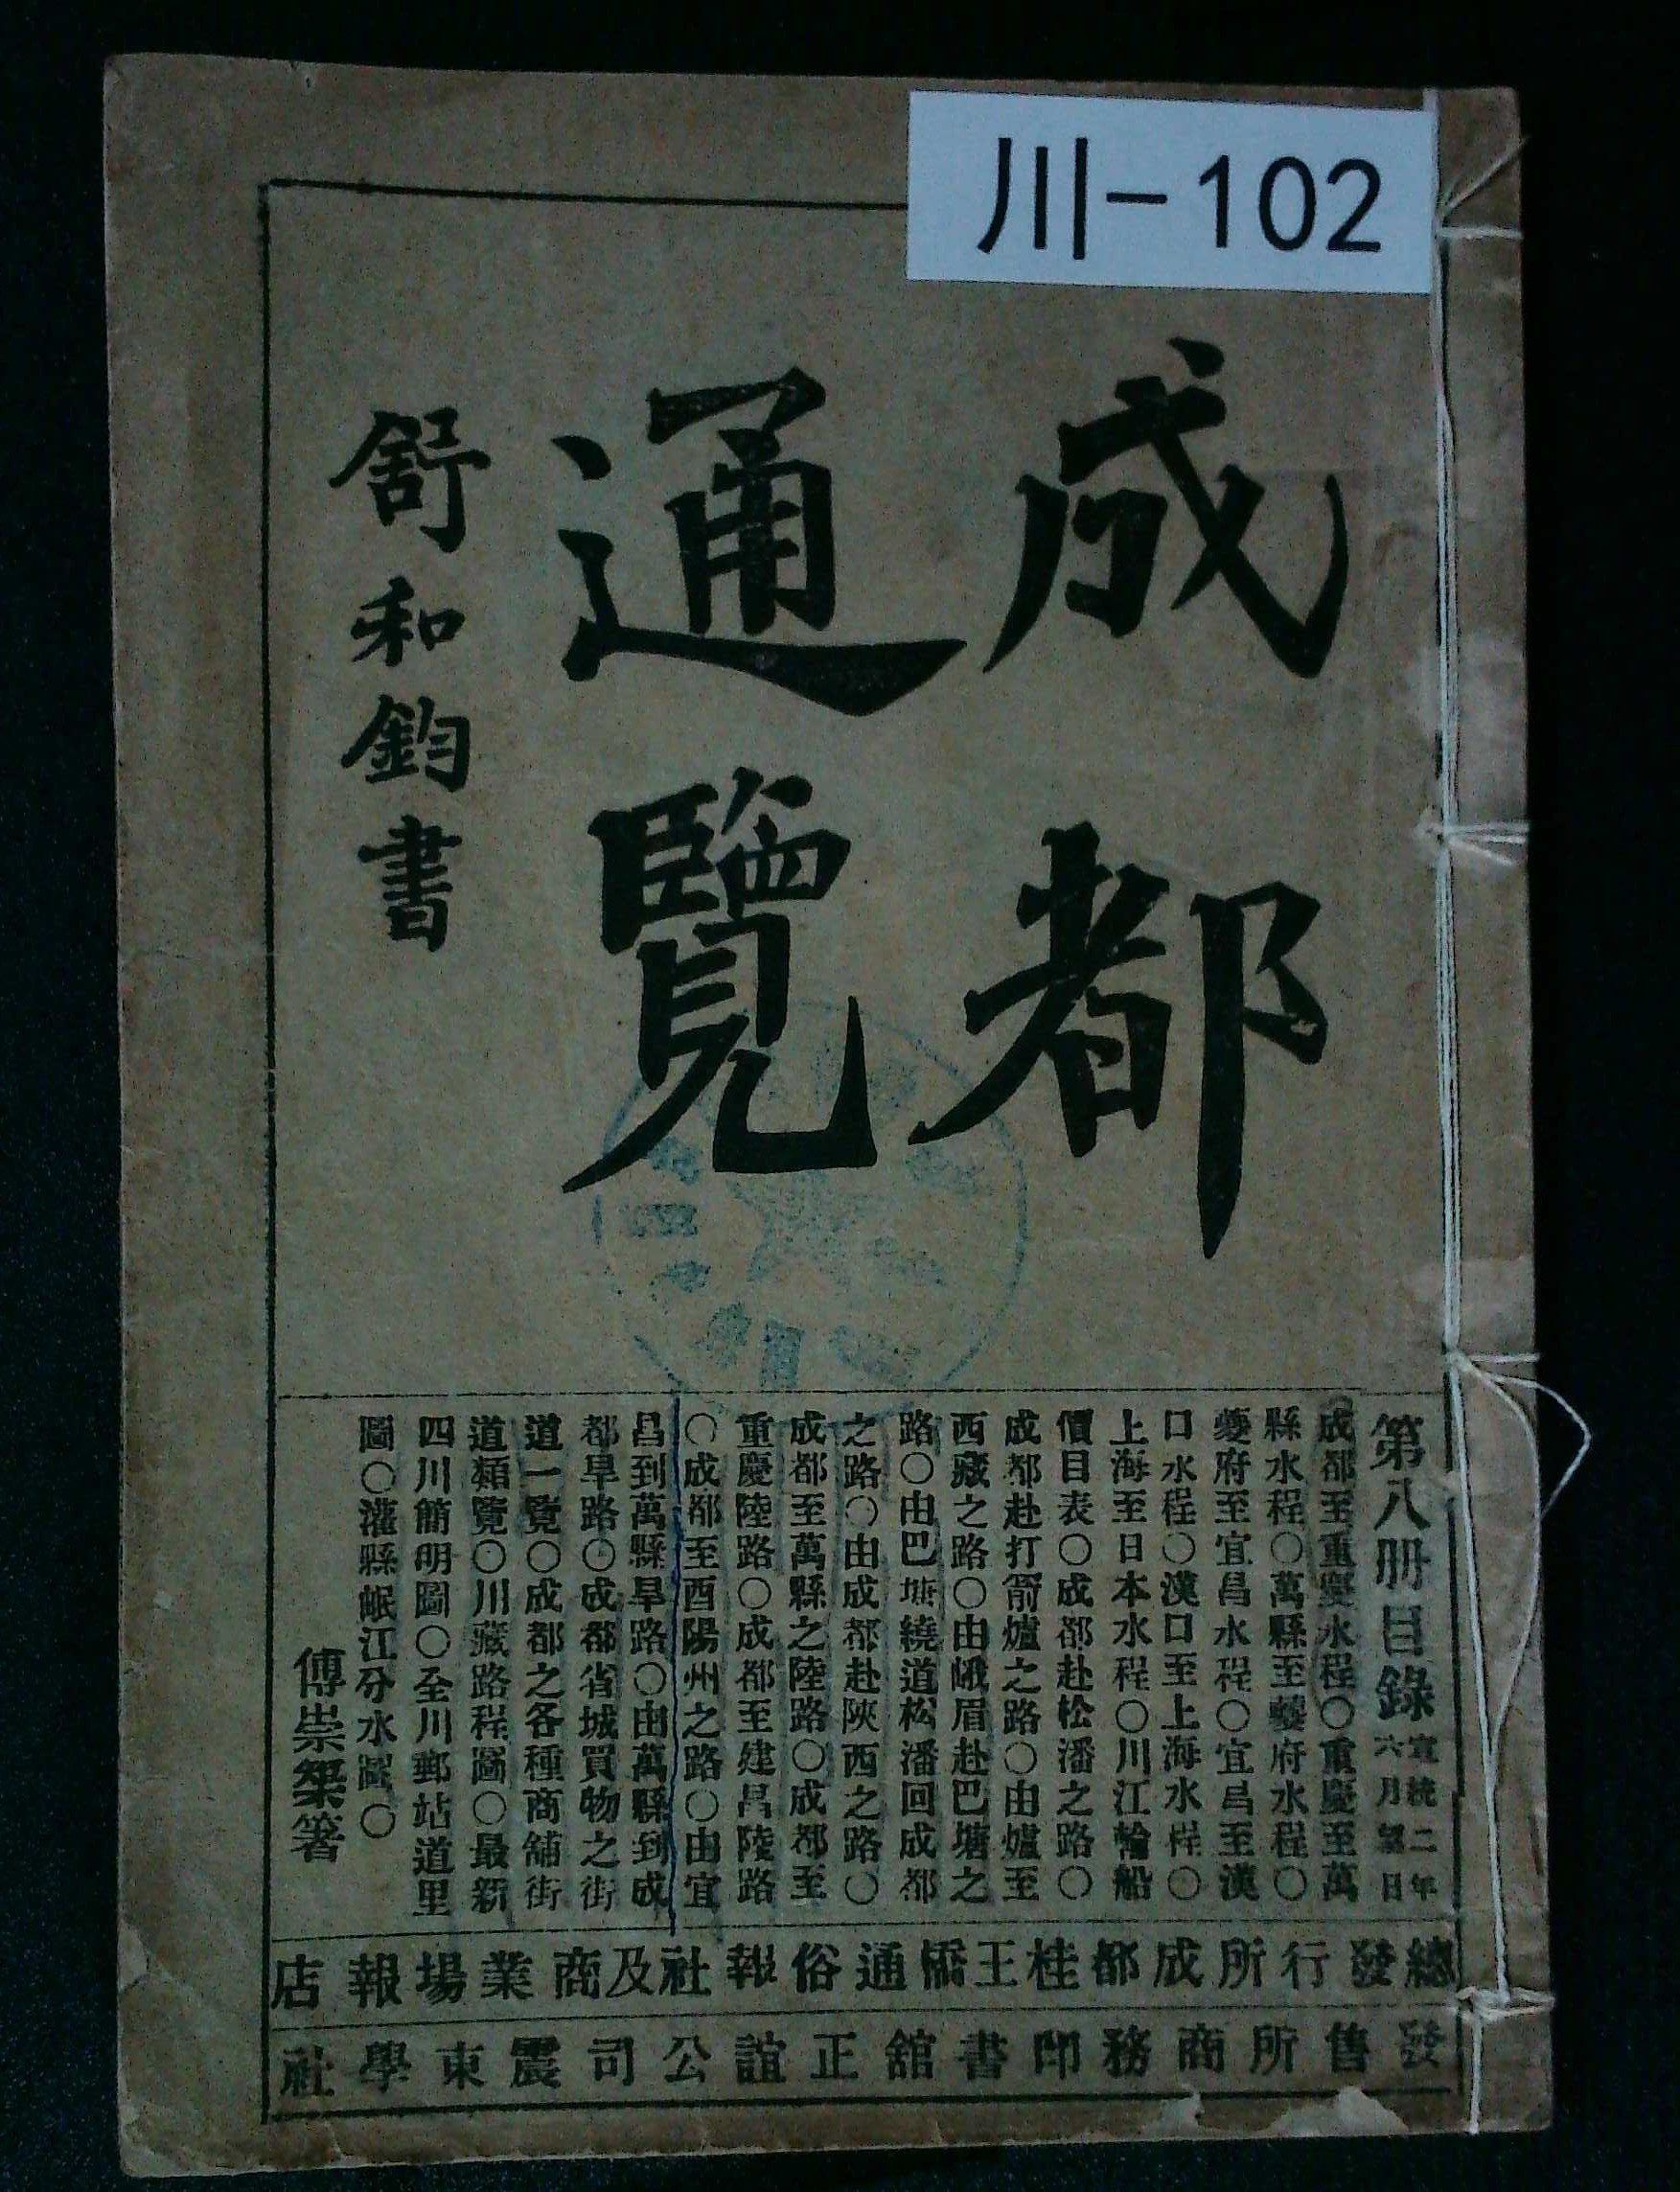 川-102
成都
通覽
舒和鈞書
第八册目錄
宣統二年
六月望日
成都至重慶水程○重慶至萬
縣水程○萬縣至夔府水程○
夔府至宜昌水程○宜昌至漢
口水程○漢口至上海水程○
上海至日本水程○川江輪船
價目表○成都赴松潘之路○
成都赴打箭爐之路○由爐至
西藏之路○由峨眉赴巴塘之
路○由巴塘繞道松潘回成都
之路○由成都赴陝西之路○
成都至萬縣之陸路○成都至
重慶陸路○成都至建昌陸路
○成都至酉陽州之路○由宜
昌到萬縣旱路○由萬縣到成
都旱路○成都省城買物之街
道一覽○成都之各種商舖街
道類覽○川藏路程圖○最新
四川簡明圖○全川郵站道里
圖○灌縣岷江分水圖○
傅崇榘著
總發行所成都桂王橋通俗報社及商業場報店
發售所商務印書舘正誼公司震東學社